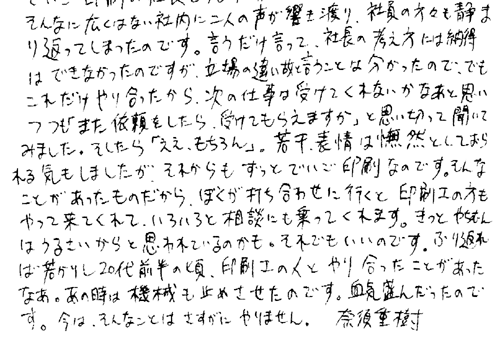 そんなに広くはない社内に二人の声が響き渡り、社員の方々も静ま
り返ってしまったのです。言うだけ言って、社長の考え方には納得
はできなかったのですが、立場の違い故と言うことは分かったので、でも
これだけやり合ったから、次の仕事は受けてくれないかなあと思い
つつ「また依頼をしたら、受けてもらえますか」と思い切って聞いて
みました。そしたら「ええ、もちろん」。若干、表情は憮然としておら
れる気もしましたが、それからもずっとでいご印刷なのです。そんな
ことがあったものだから、ぼくが打ち合わせに行くと印刷工の方も
やって来てくれて、いろいろと相談にも乗ってくれます。きっとやちもん
はうるさいからと思われているのかも。それでもいいのです。ふり返れ
ば若かりし20代前半の頃、印刷工の人とやり合ったことがあった
なあ。あの時は機械も止めさせたのです。血気盛んだったので
す。今は、そんなことはさすがにやりません。 奈須重樹